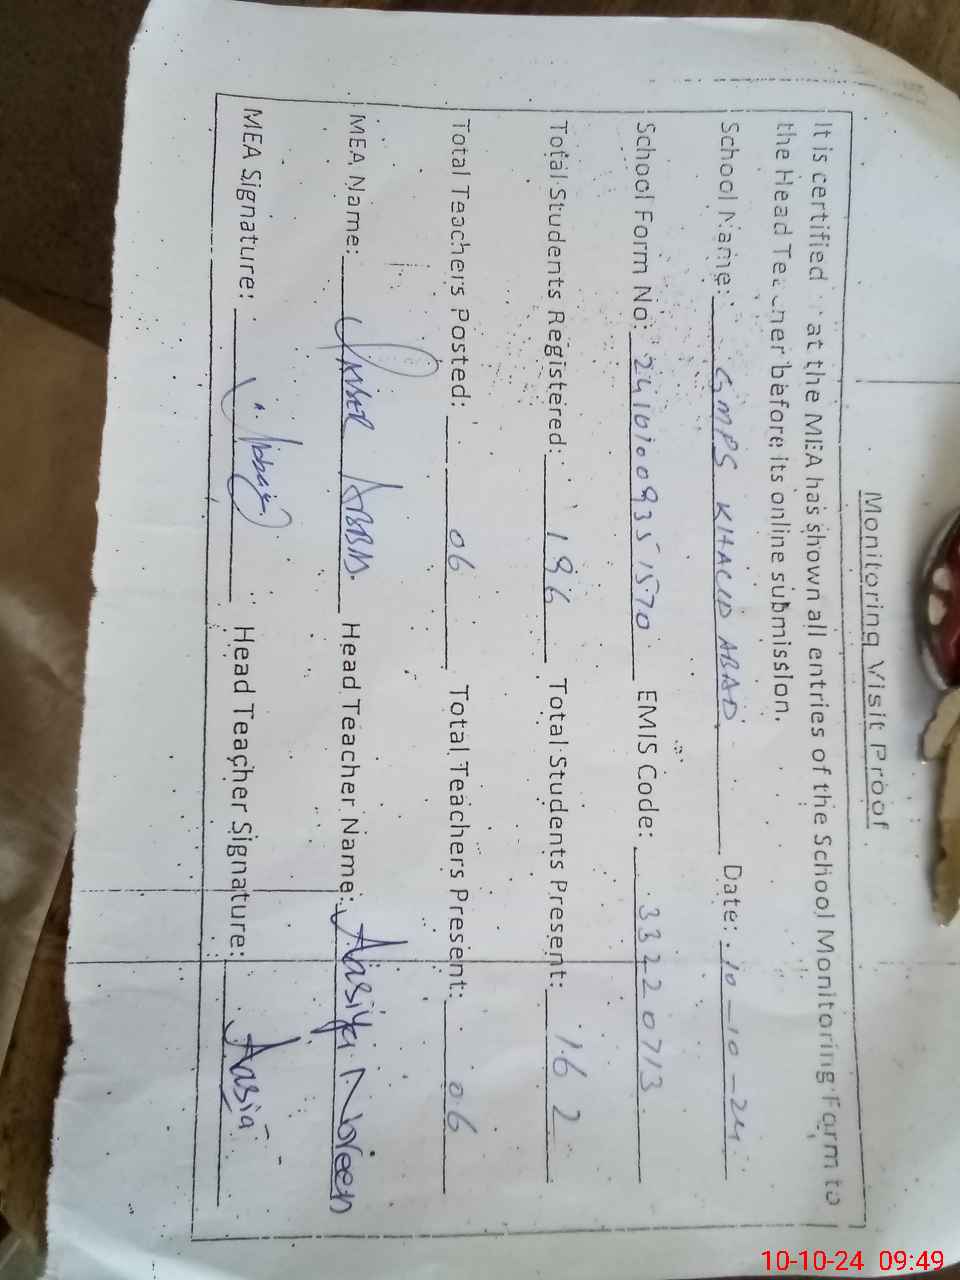 Monitoring Visit Proof
It is certified at the MEA has shown all entries of the School Monitoring Form to
the Head Teacher before its online submission.
School Name: GMPS KHALID ABAD Date: 10-10-24
School Form No: 24101009351570 EMIS Code: 33220713
Total Students Registered: 196 Total Students Present: 162
Total Teachers Posted: 06 Total Teachers Present: 06
MEA Name: ABBAS Head Teacher Name: Aasiya Noreen
MEA Signature: Abbas Head Teacher Signature: Aasia
10-10-24 09:49